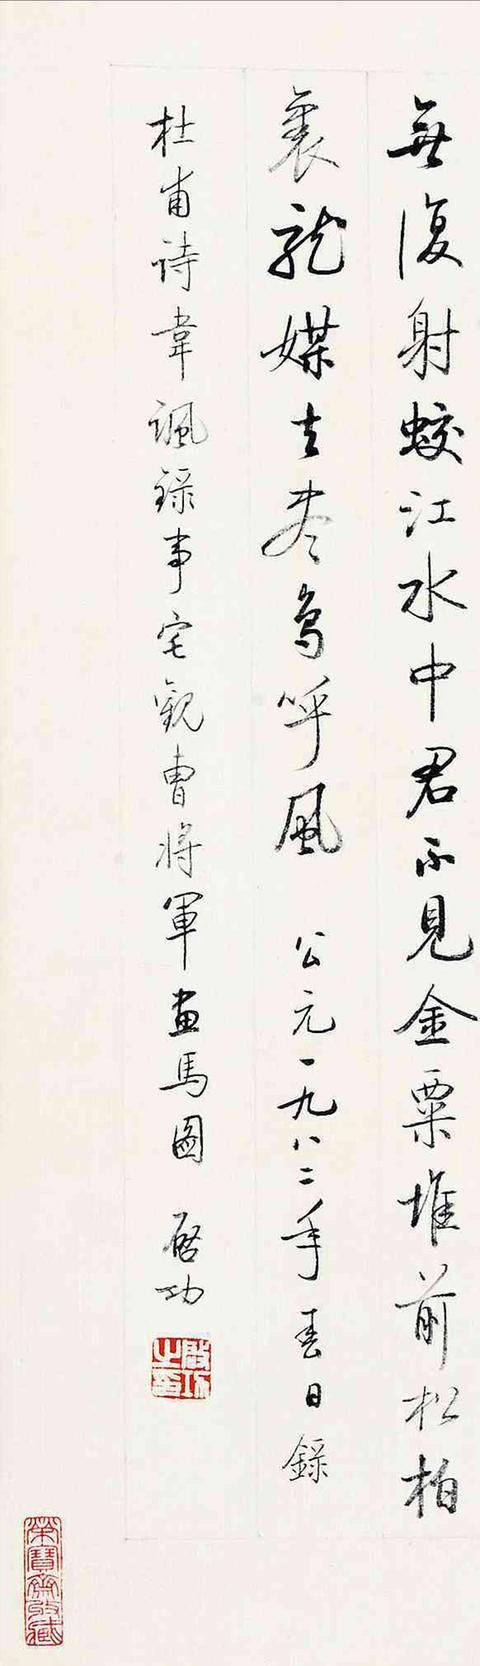 無復射蛟江水中君不見金粟堆前松柏
裏龍媒去盡鳥呼風 公元一九八二年春日錄
杜甫詩韋諷錄事宅觀曹將軍畫馬圖 啓功
啟功之印
榮寶齋收藏